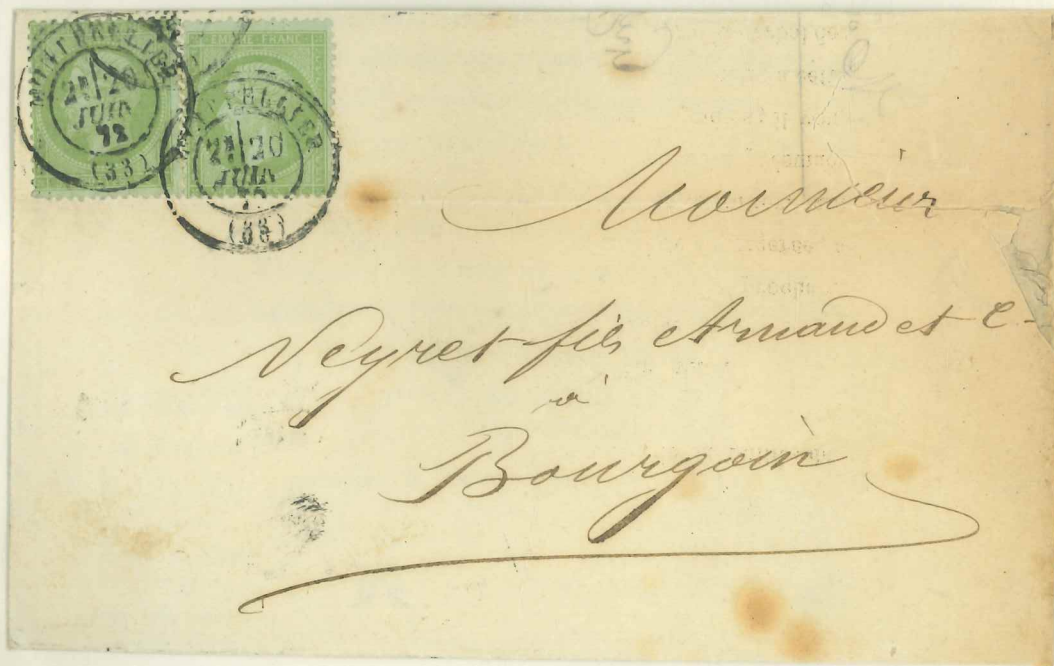 EMPIRE FRANC
MONTPELLIER
2E 20
JUIN
72
(33)
MONTPELLIER
2E 20
JUIN
72
(33)
Monsieur
Veyret fils Armand et C
à
Bourgoin